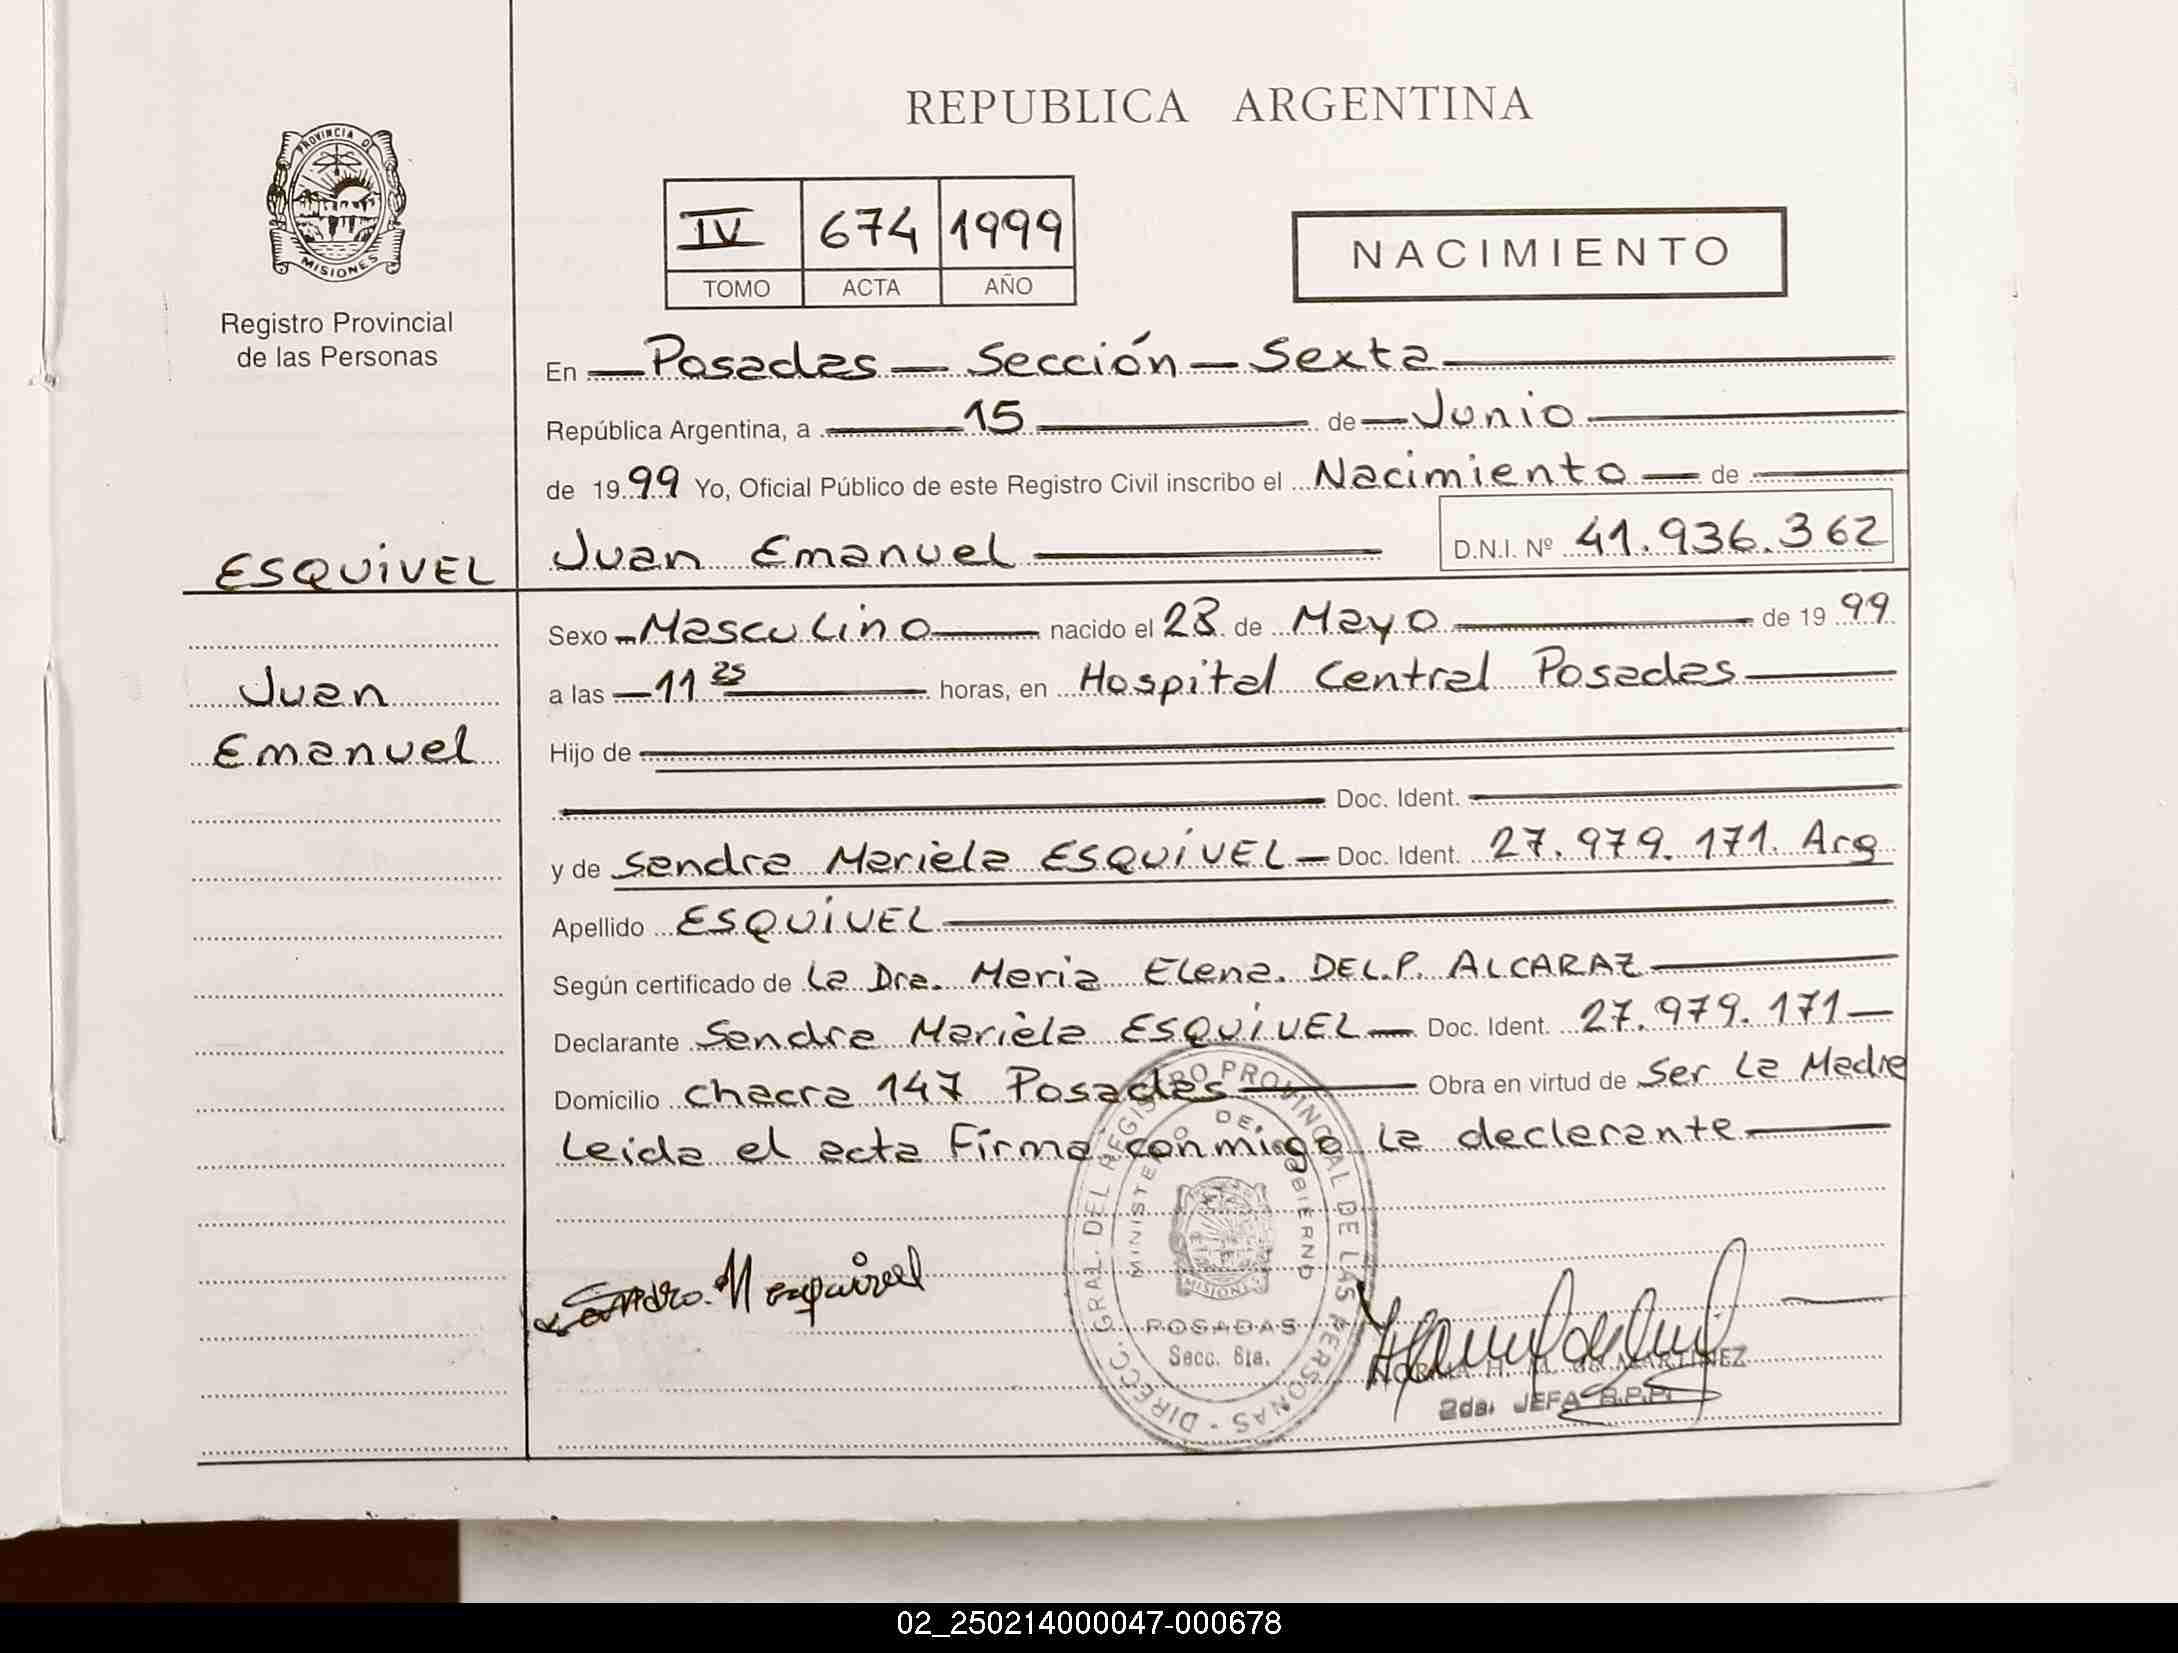 REPUBLICA ARGENTINA
PROVINCIA DE
MISIONES
Registro Provincial
de las Personas
IV 674 1999
TOMO ACTA AÑO
NACIMIENTO
En Posadas - Sección - Sexta
República Argentina, a 15 de Junio
de 1999 Yo, Oficial Público de este Registro Civil inscribo el Nacimiento de
ESQUIVEL
Juan
Emanuel
Juan Emanuel D.N.I. Nº 41.936.362
Sexo Masculino nacido el 28 de Mayo de 1999
a las 11 25 horas, en Hospital Central Posadas
Hijo de
Doc. Ident.
y de Sandra Mariela ESQUIVEL Doc. Ident. 27.979.171. Arg
Apellido ESQUIVEL
Según certificado de La Dra. Maria Elena. DEL.P. ALCARAZ
Declarante Sandra Mariela ESQUIVEL Doc. Ident. 27.979.171
Domicilio chacra 147 Posadas Obra en virtud de Ser La Madre
Leida el acta Firma conmigo La declarante
Sandra. M esquivel
DIRECC. GRAL. DEL REGISTRO PROVINCIAL DE LAS PERSONAS
MINISTERIO DE GOBIERNO
MISIONES
POSADAS
Secc. 6ta.
NORMA H. M. de MARTINEZ
2da. JEFA R.P.P.
02_250214000047-000678